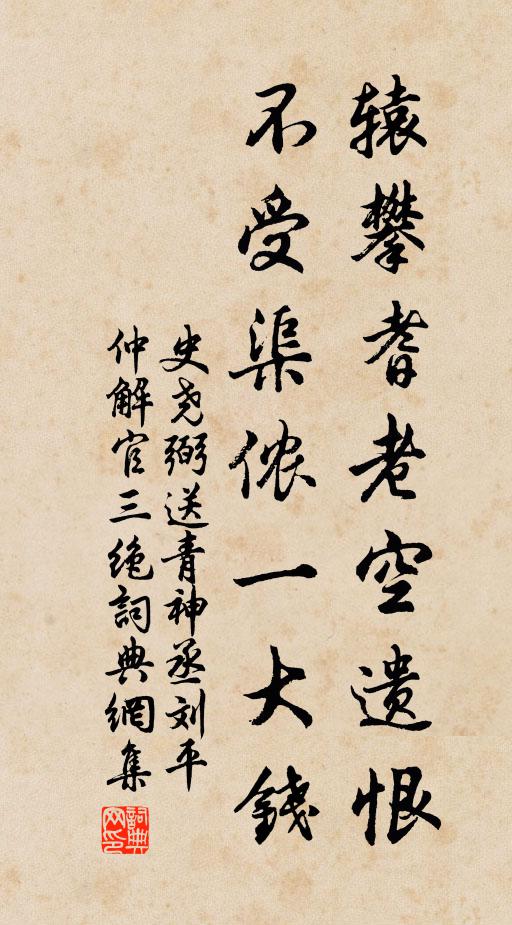 辕攀耆老空遗恨
不受渠侬一大錢
史尧弼送青神丞刘平
仲解官三绝詞典網集
詞典网印